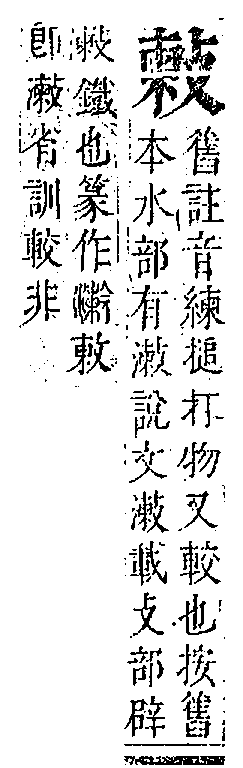 㪝
舊註音練搥打物又較也按舊
本水部有潄說文潄載攴部辟
潄鐵也篆作敕
即潄省訓較非